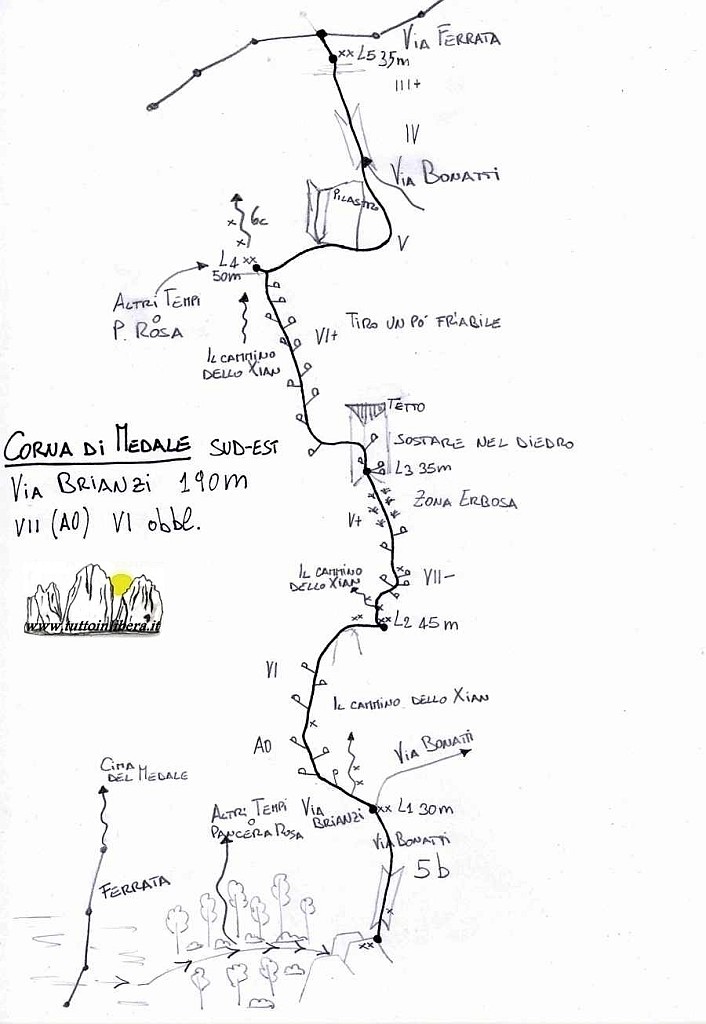 VIA FERRATA
XX L5 35m
III+
IV
VIA BONATTI
PILASTRO
6c
V
L4 XX
50m
ALTRI TEMPI
O
P. ROSA
IL CAMMINO
DELLO XIAN
VI+
TIRO UN PO' FRIABILE
TETTO
SOSTARE NEL DIEDRO
L3 35m
CORNA DI MEDALE SUD-EST
VIA BRIANZI 190m
VII (A0) VI obbl.
ZONA ERBOSA
V+
IL CAMMINO
DELLO XIAN
VII-
www.tuttoinlibera.it
XX L2 45m
VI
IL CAMMINO DELLO XIAN
A0
VIA BONATTI
CIMA
DEL MEDALE
ALTRI TEMPI
O
PANCERA ROSA
VIA
BRIANZI
XX L1 30m
VIA BONATTI
5b
FERRATA
XX